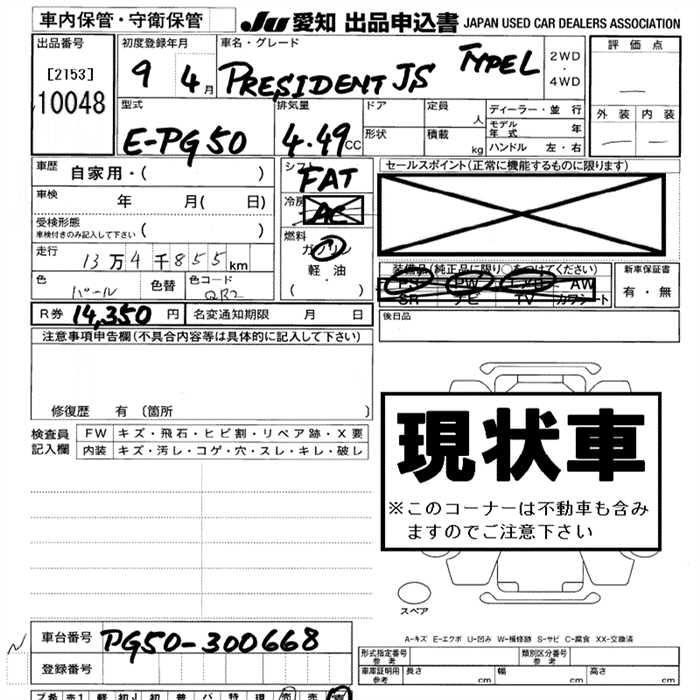 車内保管・守衛保管 JU 愛知 出品申込書 JAPAN USED CAR DEALERS ASSOCIATION
出品番号 初度登録年月 車名・グレード 2WD・4WD 評価点
[2153] 9 4月 PRESIDENT JS TYPE L
10048 型式 排気量 ドア 定員 人 ディーラー・並行 外装 内装
E-PG50 4.49CC 形状 積載 kg モデル年式 年
ハンドル 左・右
車歴 自家用・( ) シフト FAT セールスポイント(正常に機能するものに限ります)
車検 年 月( 日) 冷房 AC
受検形態 車検付きのみ記入して下さい ( ) 燃料 ガソリン
走行 13万4千855km 軽・油 装備品(純正品に限り○をつけてください) 新車保証書
色 パール 色替 色コード QR2 ( ・ ) PS PW AW 有・無
SR ナビ TV カワシート
R券 14,350円 名変通知期限 月 日 後日品
注意事項申告欄(不具合内容等は具体的に記入して下さい)
修復歴 有 (箇所 )
検査員記入欄 FW キズ・飛石・ヒビ割・リペア跡・X要
内装 キズ・汚レ・コゲ・穴・スレ・キレ・破レ
現状車
※このコーナーは不動車も含み
ますのでご注意下さい
スペア
A-キズ E-エクボ U-凹み W-補修跡 S-サビ C-腐食 XX-交換済
車台番号 PG50-300668 形式指定番号 参考 類別区分番号 参考
登録番号 車庫証明用 参考 長さ cm 幅 cm 高さ cm